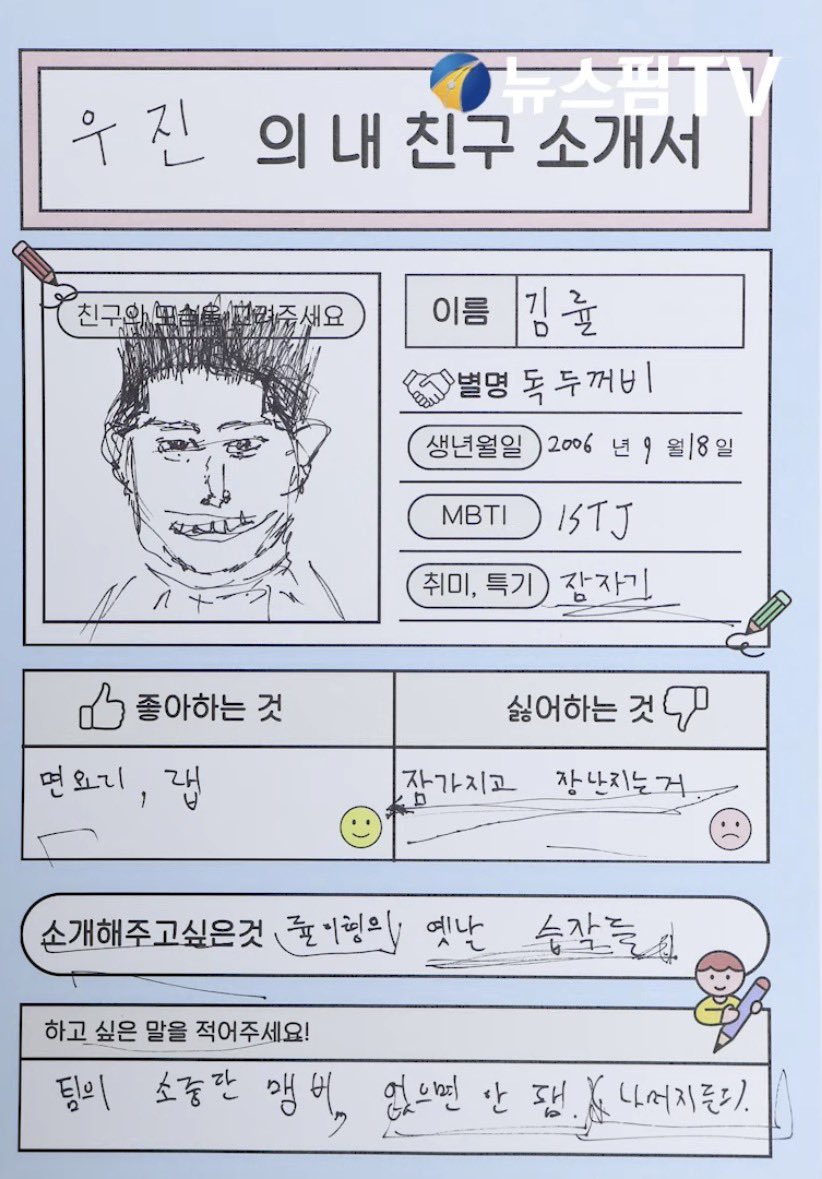 뉴스핌TV
우진 의 내 친구 소개서
친구의 모습을 그려주세요
이름 김 률
별명 독두꺼비
생년월일 2006 년 9 월 18 일
MBTI ISTJ
취미, 특기 잠자기
좋아하는 것
싫어하는 것
면요리, 랩
잠가지고 장난치는거.
소개해주고싶은것 률이형의 옛날 습작들
하고 싶은 말을 적어주세요!
팀의 소중한 맴버, 없으면 안 됌.